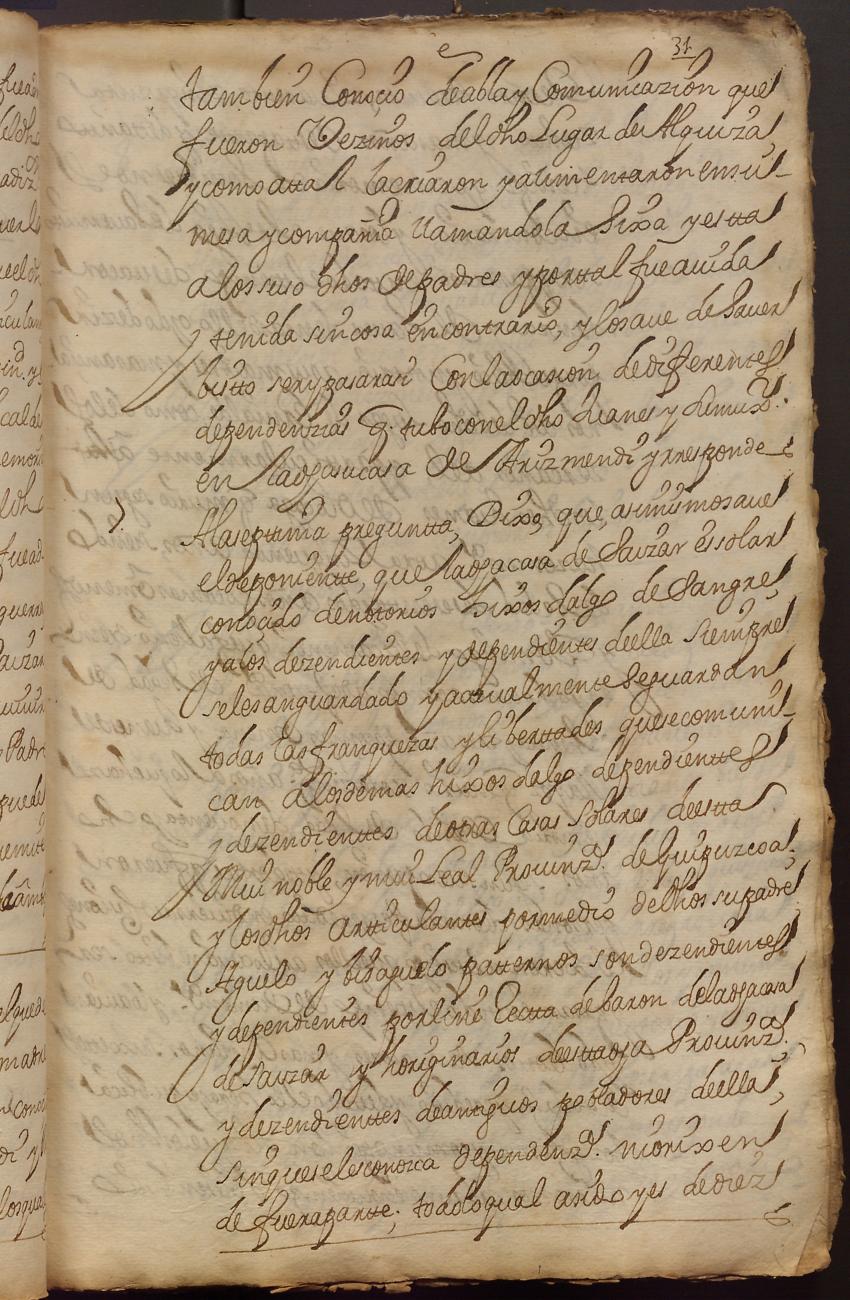 31
tambien Conoçio deabla y Comunicazion que
fueron Vezinos del dho Lugar de Alquiza,
y como attal lacriaron y alimentaron en su
mesa y compañia llamandola hixa y estta
a los suso dhos de padres y por ttal fue auida
y tenida sin cosa en contrario, y lo saue de hauer
bistto ser y pasar asi Con la ocasion de differentes
dependenzias q. tubo con el dho Juanes y
en la dha su casa de Arizmendi y rresponde
A la septtima preguntta, Dixo, que, asimismo saue
el deponiente, que la dha casa de Sauzar es solar
conoçido de notorios hixos dalgo de Sangre,
y a los dezendientes y dependientes de ella siempre
se les an guardado y actualmente se guardan
todas las franquezas y liberttades que se comuni-
can a los demas hixos dalgo dependienttes
y dezendienttes de otras Casas Solares de estta
Mui noble y mui Leal Prouinzª. de Guipuzcoa,
y los dhos artticulantes por medio de dhos su padre
Aguelo y bisaguelo patternos son dezendientes
y dependientes por line Rectta de baron de la dha casa
de Sauzar y horiginarios de estta dha Prouinzª.
y dezendienttes de antiguos pobladores de ella,
sin que se les conozca dependenzª. ni orixen
de fuera partte; todo lo qual a sido y es de diez